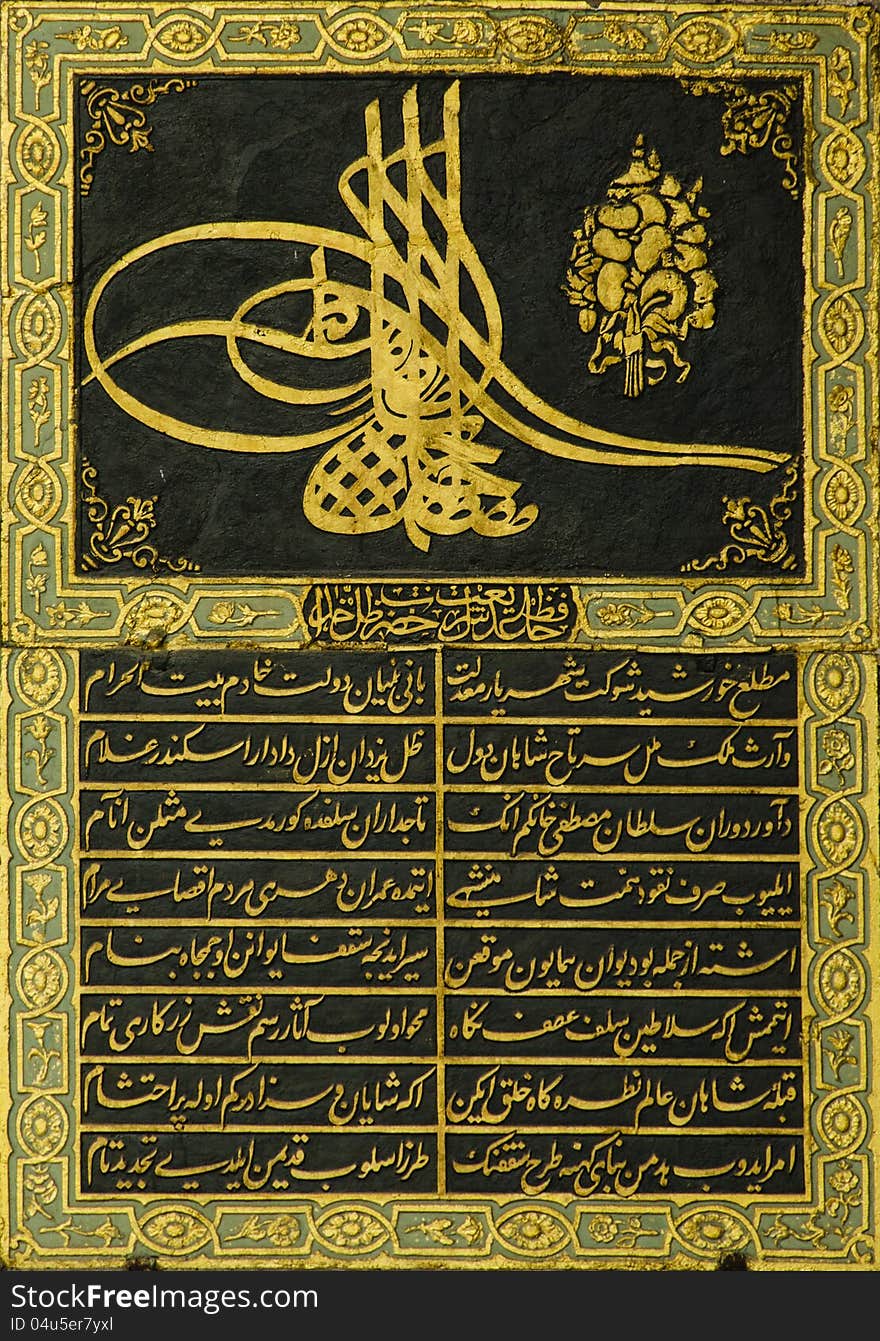 مطلع خورشید شوکت شهریار معدلت بانی بنیان دولت خادم بیت الحرام
وارث ملک ملل سرتاج شاهان دول ظل یزدان ازل دادار اسکندر غلام
داور دوران سلطان مصطفی خانکم انک تاجداران سلفده کورمدی مثلن انام
ایلیوب صرف نقود همت شاهنشهی ایتمده عمران دهری مردم اقصای مرام
اشته ازجمله بو دیوان همایون موقعن سیر ایدنجه سقف ایوانن او جمجاه بنام
ایتمش اکه سلاطین سلف عطف نکاه محو اولوب آثار رسم نقش زرکاری تمام
قبله شاهان عالم نظره کاه خلق ایکن اکه شایان و سزادرکم اوله پر احتشام
امر ایدوب هدمن بنای کهنه طرح سقفنک طرز اسلوب قدیمن ایلدی تجدید تام
StockFreeImages.com
ID 04u5er7yxl